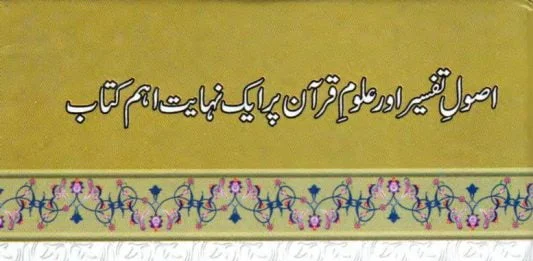 اصولِ تفسیر اور علومِ قرآن پر ایک نہایت اہم کتاب